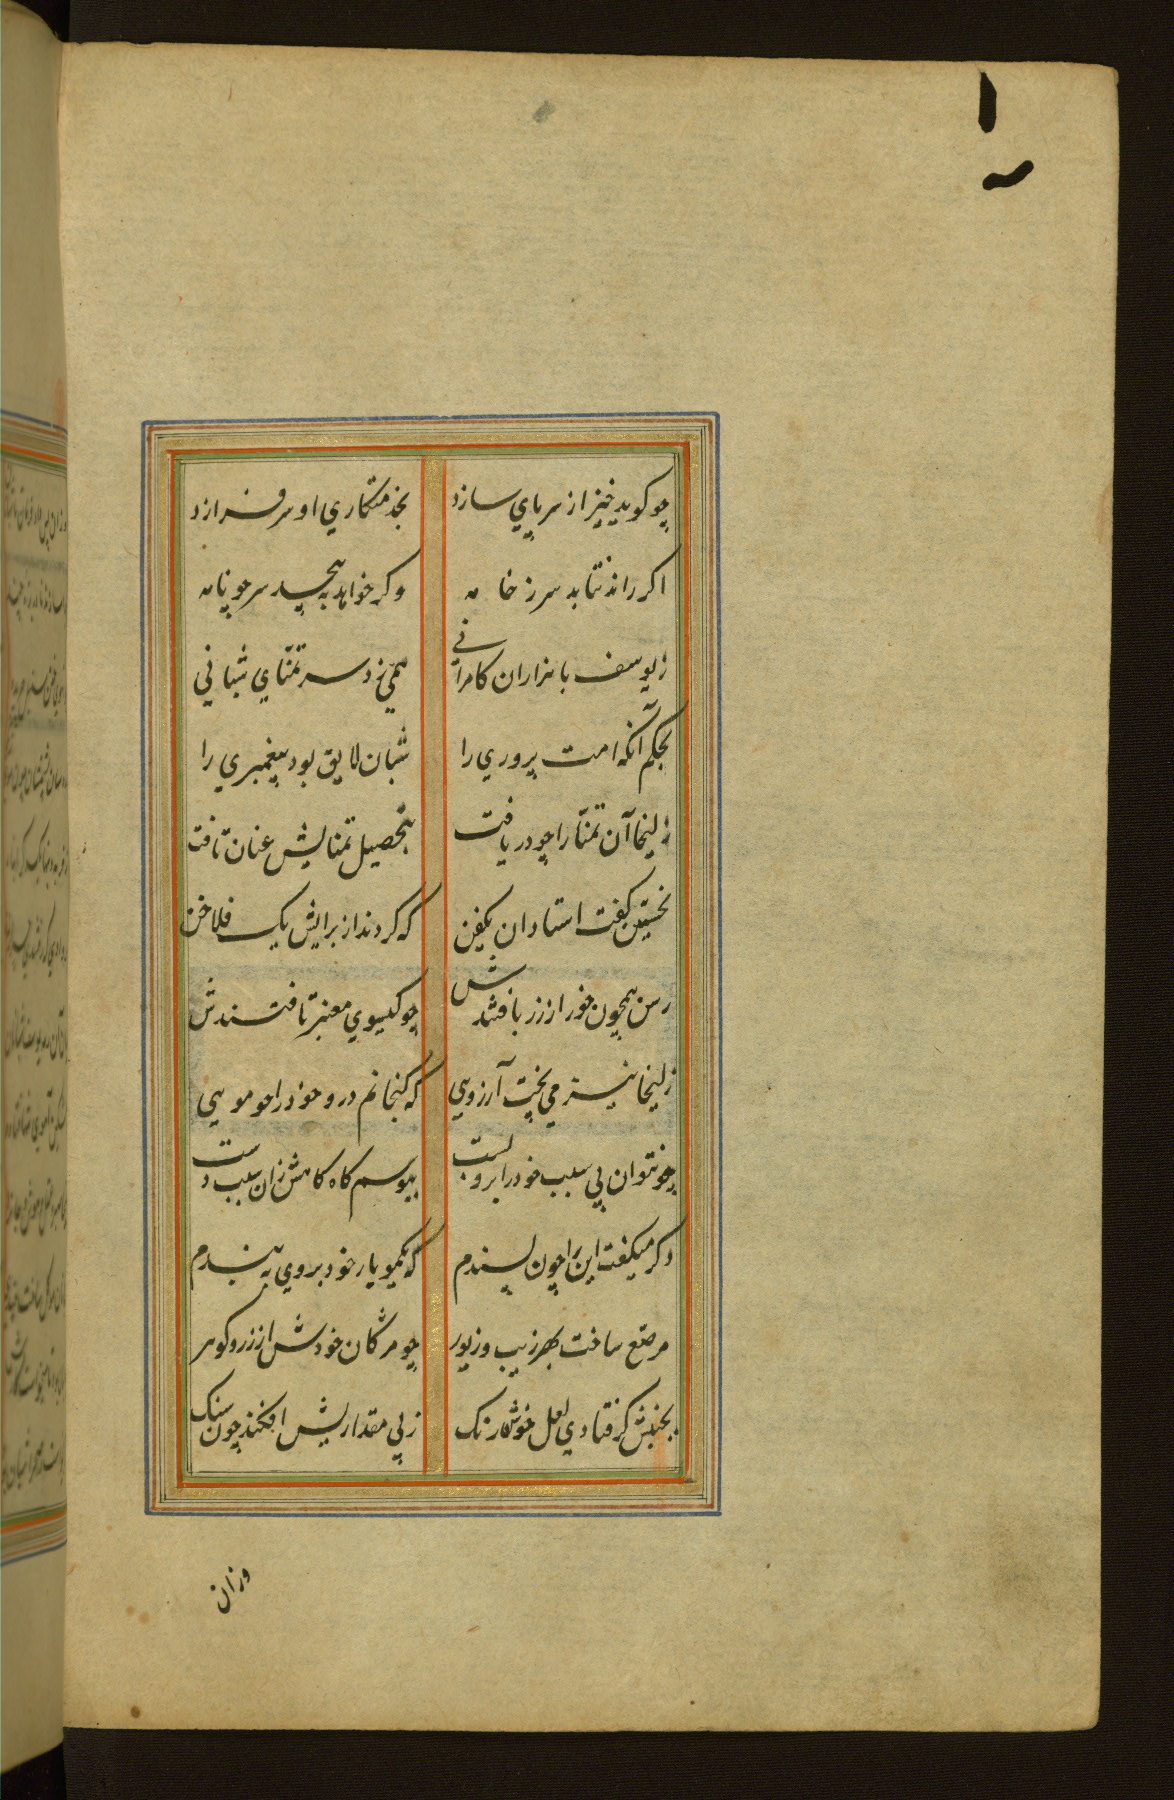 چو کوید خیز از سر پاي سازد بخذمتکاري او سر فرازد
اکر راند نتابد سر ز خامه وکر خواهد به پیچد سر چو نامه
ز یوسف با هزاران کامرانی همی زد سر تمنّاي شبانی
بحکم آنکه امت پروري را شبان لایق بود پیغمبري را
زلیخا آن تمنّا را چو دریافت بتحصیل تمنایش عنان تافت
نخستین کفت استادان یکفن که کردند از برایش یک فلاخن
رسن همچون خور از زر بافتندش چو کیسوي معنبر تافتندش
زلیخا نیز می پخت آرزویی که کنجانم درو خود را چو مویی
چو نتوان بی سبب خود را برو بست ببوسم کاه کاهش زان سبب دست
دکر میکفت این را چون پسندم که یکمو یار خود بروي به بندم
مرصّع ساخت بهر زیب و زیور چو مژکان خودش از زر و کوهر
بجنبش کر فتادي لعل خوش رنک ز بی مقداریش افکند چون سنک
وزان